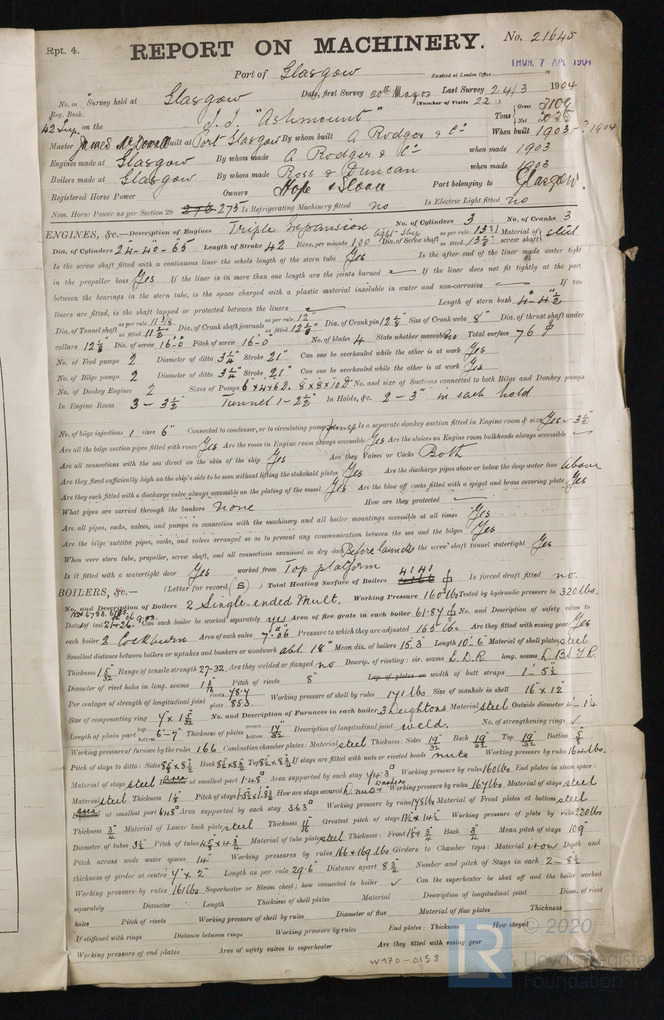 Rpt. 4.
REPORT ON MACHINERY.
No. 21645
Port of Glasgow
Received at London Office
THUR. 7 APL 1904
No. in Survey held at Glasgow Date, first Survey 20th Last Survey 24/3 1904
Reg. Book. (Number of Visits 22)
42 Sup. on the "Ashmount" Tons Gross Net
Master James McDonald Built at Port Glasgow By whom built A Rodger & Co When built 1903-1904
Engines made at Glasgow By whom made A Rodger & Co when made 1903
Boilers made at Glasgow By whom made Ross & Duncan when made 1903
Registered Horse Power Owners Hope & Sloan Port belonging to Glasgow
Nom. Horse Power as per Section 28 276 275 Is Refrigerating Machinery fitted no Is Electric Light fitted no
ENGINES, &c.— Description of Engines Triple Expansion No. of Cylinders 3 No. of Cranks 3
Dia. of Cylinders 24"-40"-65" Length of Stroke 42 Revs. per minute Dia. of Screw shaft as per rule as fitted 13 1/2" Material of screw shaft steel
Is the screw shaft fitted with a continuous liner the whole length of the stern tube Yes Is the after end of the liner made water tight
in the propeller boss Yes If the liner is in more than one length are the joints burned If the liner does not fit tightly at the part
between the bearings in the stern tube, is the space charged with a plastic material insoluble in water and non-corrosive If two
liners are fitted, is the shaft lapped or protected between the liners Length of stern bush 4'-4 1/2"
Dia. of Tunnel shaft as per rule 11 3/8 as fitted 11 1/2" Dia. of Crank shaft journals as per rule 12" as fitted 12 1/8" Dia. of Crank pin 12 1/8 Size of Crank webs 8" Dia. of thrust shaft under
collars 12 1/8 Dia. of screw 16-0 Pitch of screw 16-0" No. of blades 4 State whether moveable No Total surface 76
No. of Feed pumps 2 Diameter of ditto 3 1/4" Stroke 21" Can one be overhauled while the other is at work Yes
No. of Bilge pumps 2 Diameter of ditto 3 1/4" Stroke 21" Can one be overhauled while the other is at work Yes
No. of Donkey Engines 2 Sizes of Pumps 6"x4x6 8"x8x10 No. and size of Suctions connected to both Bilge and Donkey pumps
In Engine Room 3 - 3 1/2" Tunnel 1 - 2 1/2" In Holds, &c. 2 - 3" in each hold
No. of bilge injections 1 sizes 6" Connected to condenser, or to circulating pump pump Is a separate donkey suction fitted in Engine room & size Yes - 3 1/2
Are all the bilge suction pipes fitted with roses Yes Are the roses in Engine room always accessible Yes Are the sluices on Engine room bulkheads always accessible
Are all connections with the sea direct on the skin of the ship Yes Are they Valves or Cocks Both
Are they fixed sufficiently high on the ship's side to be seen without lifting the stokehold plates Yes Are the discharge pipes above or below the deep water line above
Are they each fitted with a discharge valve always accessible on the plating of the vessel Yes Are the blow off cocks fitted with a spigot and brass covering plate Yes
What pipes are carried through the bunkers none How are they protected
Are all pipes, cocks, valves, and pumps in connection with the machinery and all boiler mountings accessible at all times Yes
Are the bilge suction pipes, cocks, and valves arranged so as to prevent any communication between the sea and the bilges Yes
When were stern tube, propeller, screw shaft, and all connections examined in dry dock Before launch Is the screw shaft tunnel watertight Yes
Is it fitted with a watertight door Yes worked from Top platform
BOILERS, &c.— (Letter for record (S)) Total Heating Surface of Boilers 4141 Is forced draft fitted no.
No. and Description of Boilers 2 Single-ended Mult. Working Pressure 160 lbs Tested by hydraulic pressure to 320 lbs.
Date of test Can each boiler be worked separately yes Area of fire grate in each boiler 61.87 No. and Description of safety valves to
each boiler 2 Cockburn Area of each valve 7.06 Pressure to which they are adjusted 165 lbs Are they fitted with easing gear Yes
Smallest distance between boilers or uptakes and bunkers or woodwork abt. 18" Mean dia. of boilers 15'3" Length 10'-6" Material of shell plates steel
Thickness 1 5/32 Range of tensile strength 27-32 Are they welded or flanged no Descrip. of riveting: cir. seams L.D.R. long. seams D.B.S.T.R.
Diameter of rivet holes in long. seams 1 3/16 Pitch of rivets 8" Lap of plates or width of butt straps 1'-5 3/4
Per centages of strength of longitudinal joint rivets 78.4 plate 85.3 Working pressure of shell by rules 171 lbs Size of manhole in shell 16"x12"
Size of compensating ring 7"x1 5/32 No. and Description of Furnaces in each boiler 3 Deightons Material steel Outside diameter 4'-1 1/4
Length of plain part top bottom 6'-7" Thickness of plates crown bottom 17/32 Description of longitudinal joint weld. No. of strengthening rings
Working pressure of furnace by the rules 166 Combustion chamber plates: Material steel Thickness: Sides 19/32 Back 19/32 Top 19/32 Bottom
Pitch of stays to ditto: Sides Back Top If stays are fitted with nuts or riveted heads nuts Working pressure by rules 164 lbs.
Material of stays steel at smallest part 1.48" Area supported by each stay 74.3 Working pressure by rules 160 lbs End plates in steam space:
Material steel Thickness Pitch of stays How are stays secured D. nuts & washers Working pressure by rules 167 lbs Material of stays steel
at smallest part 6.48" Area supported by each stay 363 Working pressure by rules 178 lbs Material of Front plates at bottom steel
Thickness 3/4 Material of Lower back plate steel Thickness 11/16 Greatest pitch of stays Working pressure of plate by rules 220 lbs
Diameter of tubes 3 1/2 Pitch of tubes Material of tube plates steel Thickness: Front Back 3/4 Mean pitch of stays
Pitch across wide water spaces 14" Working pressures by rules 166 & 169 lbs Girders to Chamber tops: Material iron Depth and
thickness of girder at centre 7"x2" Length as per rule 29.6" Distance apart 8 3/4 Number and pitch of Stays in each 2 - 8 1/2
Working pressure by rules 161 lbs Superheater or Steam chest; how connected to boiler Can the superheater be shut off and the boiler worked
separately Diameter Length Thickness of shell plates Material Description of longitudinal joint Diam. of rivet
holes Pitch of rivets Working pressure of shell by rules Diameter of flue Material of flue plates Thickness
If stiffened with rings Distance between rings Working pressure by rules End plates: Thickness How stayed
Working pressure of end plates Area of safety valves to superheater Are they fitted with easing gear
W970-0158
© 2020
LR
Lloyd's Register
Foundation